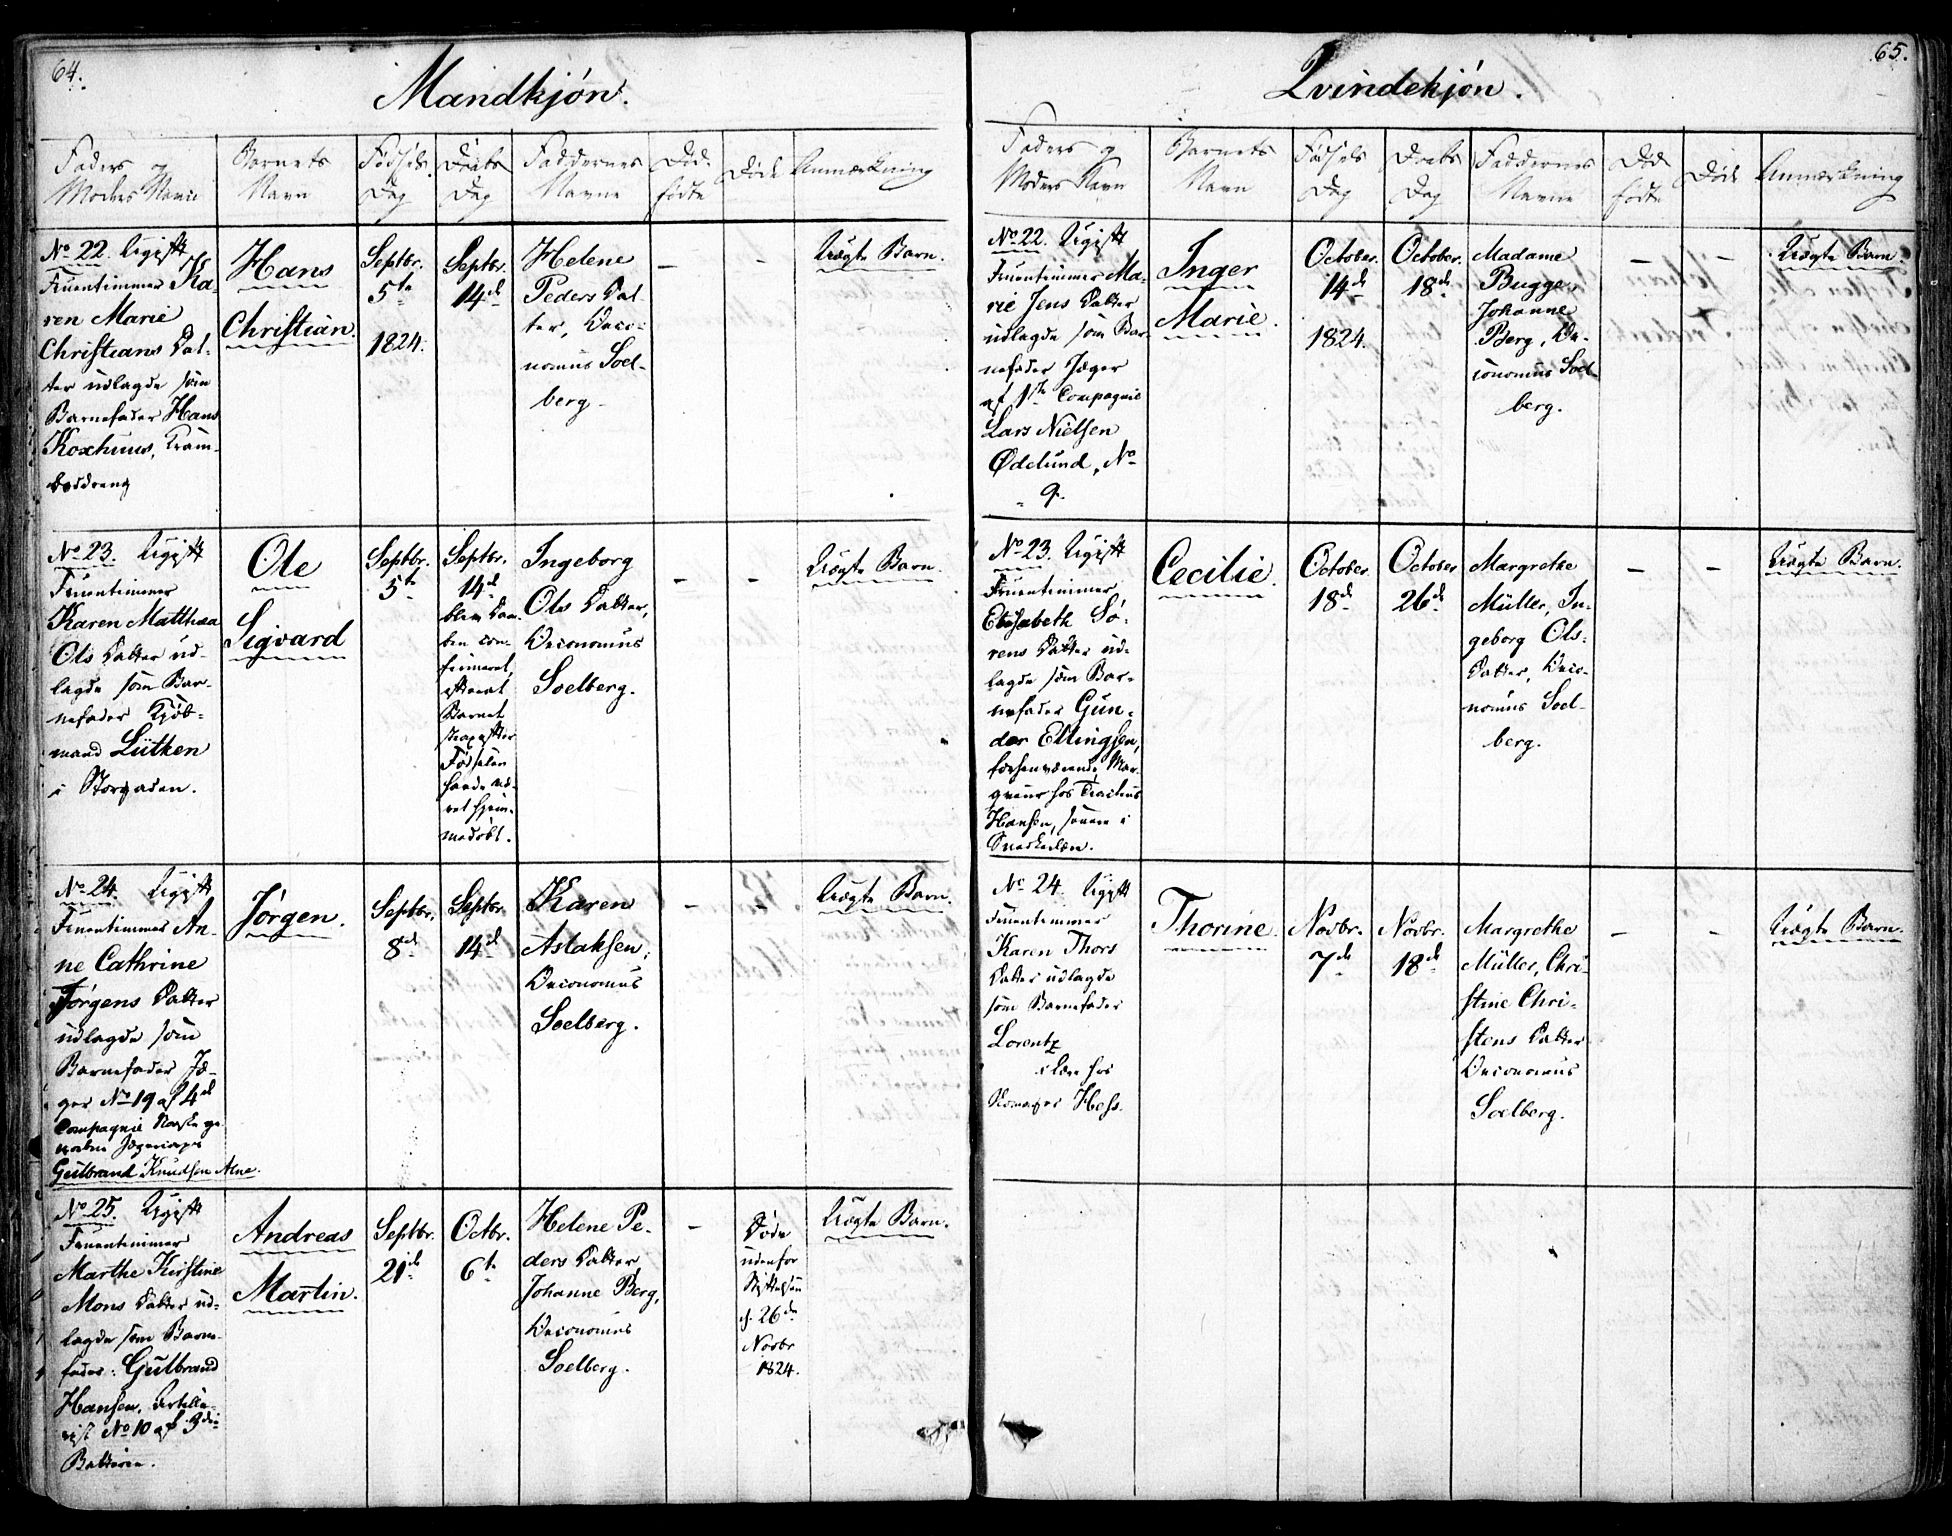 64.
Mandkjön.
Faders og
Moders Navn
Barnets
Navn
Fødsels
Dag
Daabs
Dag
Faddernes
Navne
Død
fødte
Døde
Anmærkning
No 22. Ugift
Fruentimmer Ka-
ren Marie
Christians Dat-
ter udlagde som
Barnefader Hans
Koxhuus, Kram-
boddreng
Hans
Christian.
Septbr.
5te
1824.
Septbr.
14de
Helene
Peders Dat-
ter, Oeco-
nomus Soel-
berg.
–
–
Uægte Barn.
No 23. Ugift
Fruentimmer
Karen Matthea
Ols Datter ud-
lagde som Bar-
nefader Kjøb-
mand Lütken
i Storgaden.
Ole
Sigvard
Septbr.
5te
Septbr.
14de
blev Daa-
ben con-
firmeret,
efterat
Barnet
strax efter
Fødselen
havde væ-
ret hjem-
medøbt.
Ingeborg
Ols Datter,
Oeconomus
Soelberg.
–
–
Uægte Barn.
No 24. Ugift
Fruentimmer An-
ne Cathrine
Jörgens Datter
udlagde som
Barnefader Jæ-
ger No 19 af 4de
Compagnie Norske ge-
Gulbrand Knudsen
Jörgen.
Septbr.
8de
Septbr.
14de
Karen
Aslaksen,
Oeconomus
Soelberg.
–
–
Uægte Barn.
No 25. Ugift
Fruentimmer
Marthe Kirstine
Mons Datter ud-
lagde som Barne-
fader: Gulbrand
Hansen, Artille-
rist No 10 af 3die
Batterie.
Andreas
Martin.
Septbr.
21de
Octbr.
6te
Helene Pe-
ders Datter
Johanne Berg,
Oeconomus
Soelberg.
–
Døde
udenfor
Stiftelsen
d. 26de
Novbr
1824.
Uægte Barn.
65.
Qvindekjön.
Faders og
Moders Navn
Barnets
Navn
Fødsels
Dag
Daabs
Dag
Faddernes
Navne
Død
fødte
Døde
Anmærkning
No 22. Ugift
Fruentimmer Ma-
rie Jens Datter
udlagde som Bar-
nefader Jæger
af 1ste Compagnie
Lars Nielsen
Ødelund, No
9.
Inger
Marie.
October
14de
1824.
October.
18de
Madame
Bugge,
Johanne
Berg, Oe-
conomus Soel-
berg.
–
–
Uægte Barn
No 23. Ugift
Fruentimmer
Elisabeth Sö-
rens Datter ud-
lagde som Bar-
nefader Gun-
der Ellingsen,
forhenværende
hos
Hansen, i
Snedkerlære.
Cecilie.
October
18de
October
26de
Margrethe
Müller, In-
geborg Ols-
Datter, Oeco-
nomus Soel-
berg.
–
–
Uægte Barn.
No 24. Ugift
Fruentimmer
Karen Thors
Datter udlagde
som Barnefader
Lorentz
i Lære hos
Hess.
Thorine.
Novbr.
7de
Novbr.
18de
Margrethe
Müller, Chri-
stine Chri-
stens Datter
Oeconomus
Soelberg.
–
–
Uægte Barn.